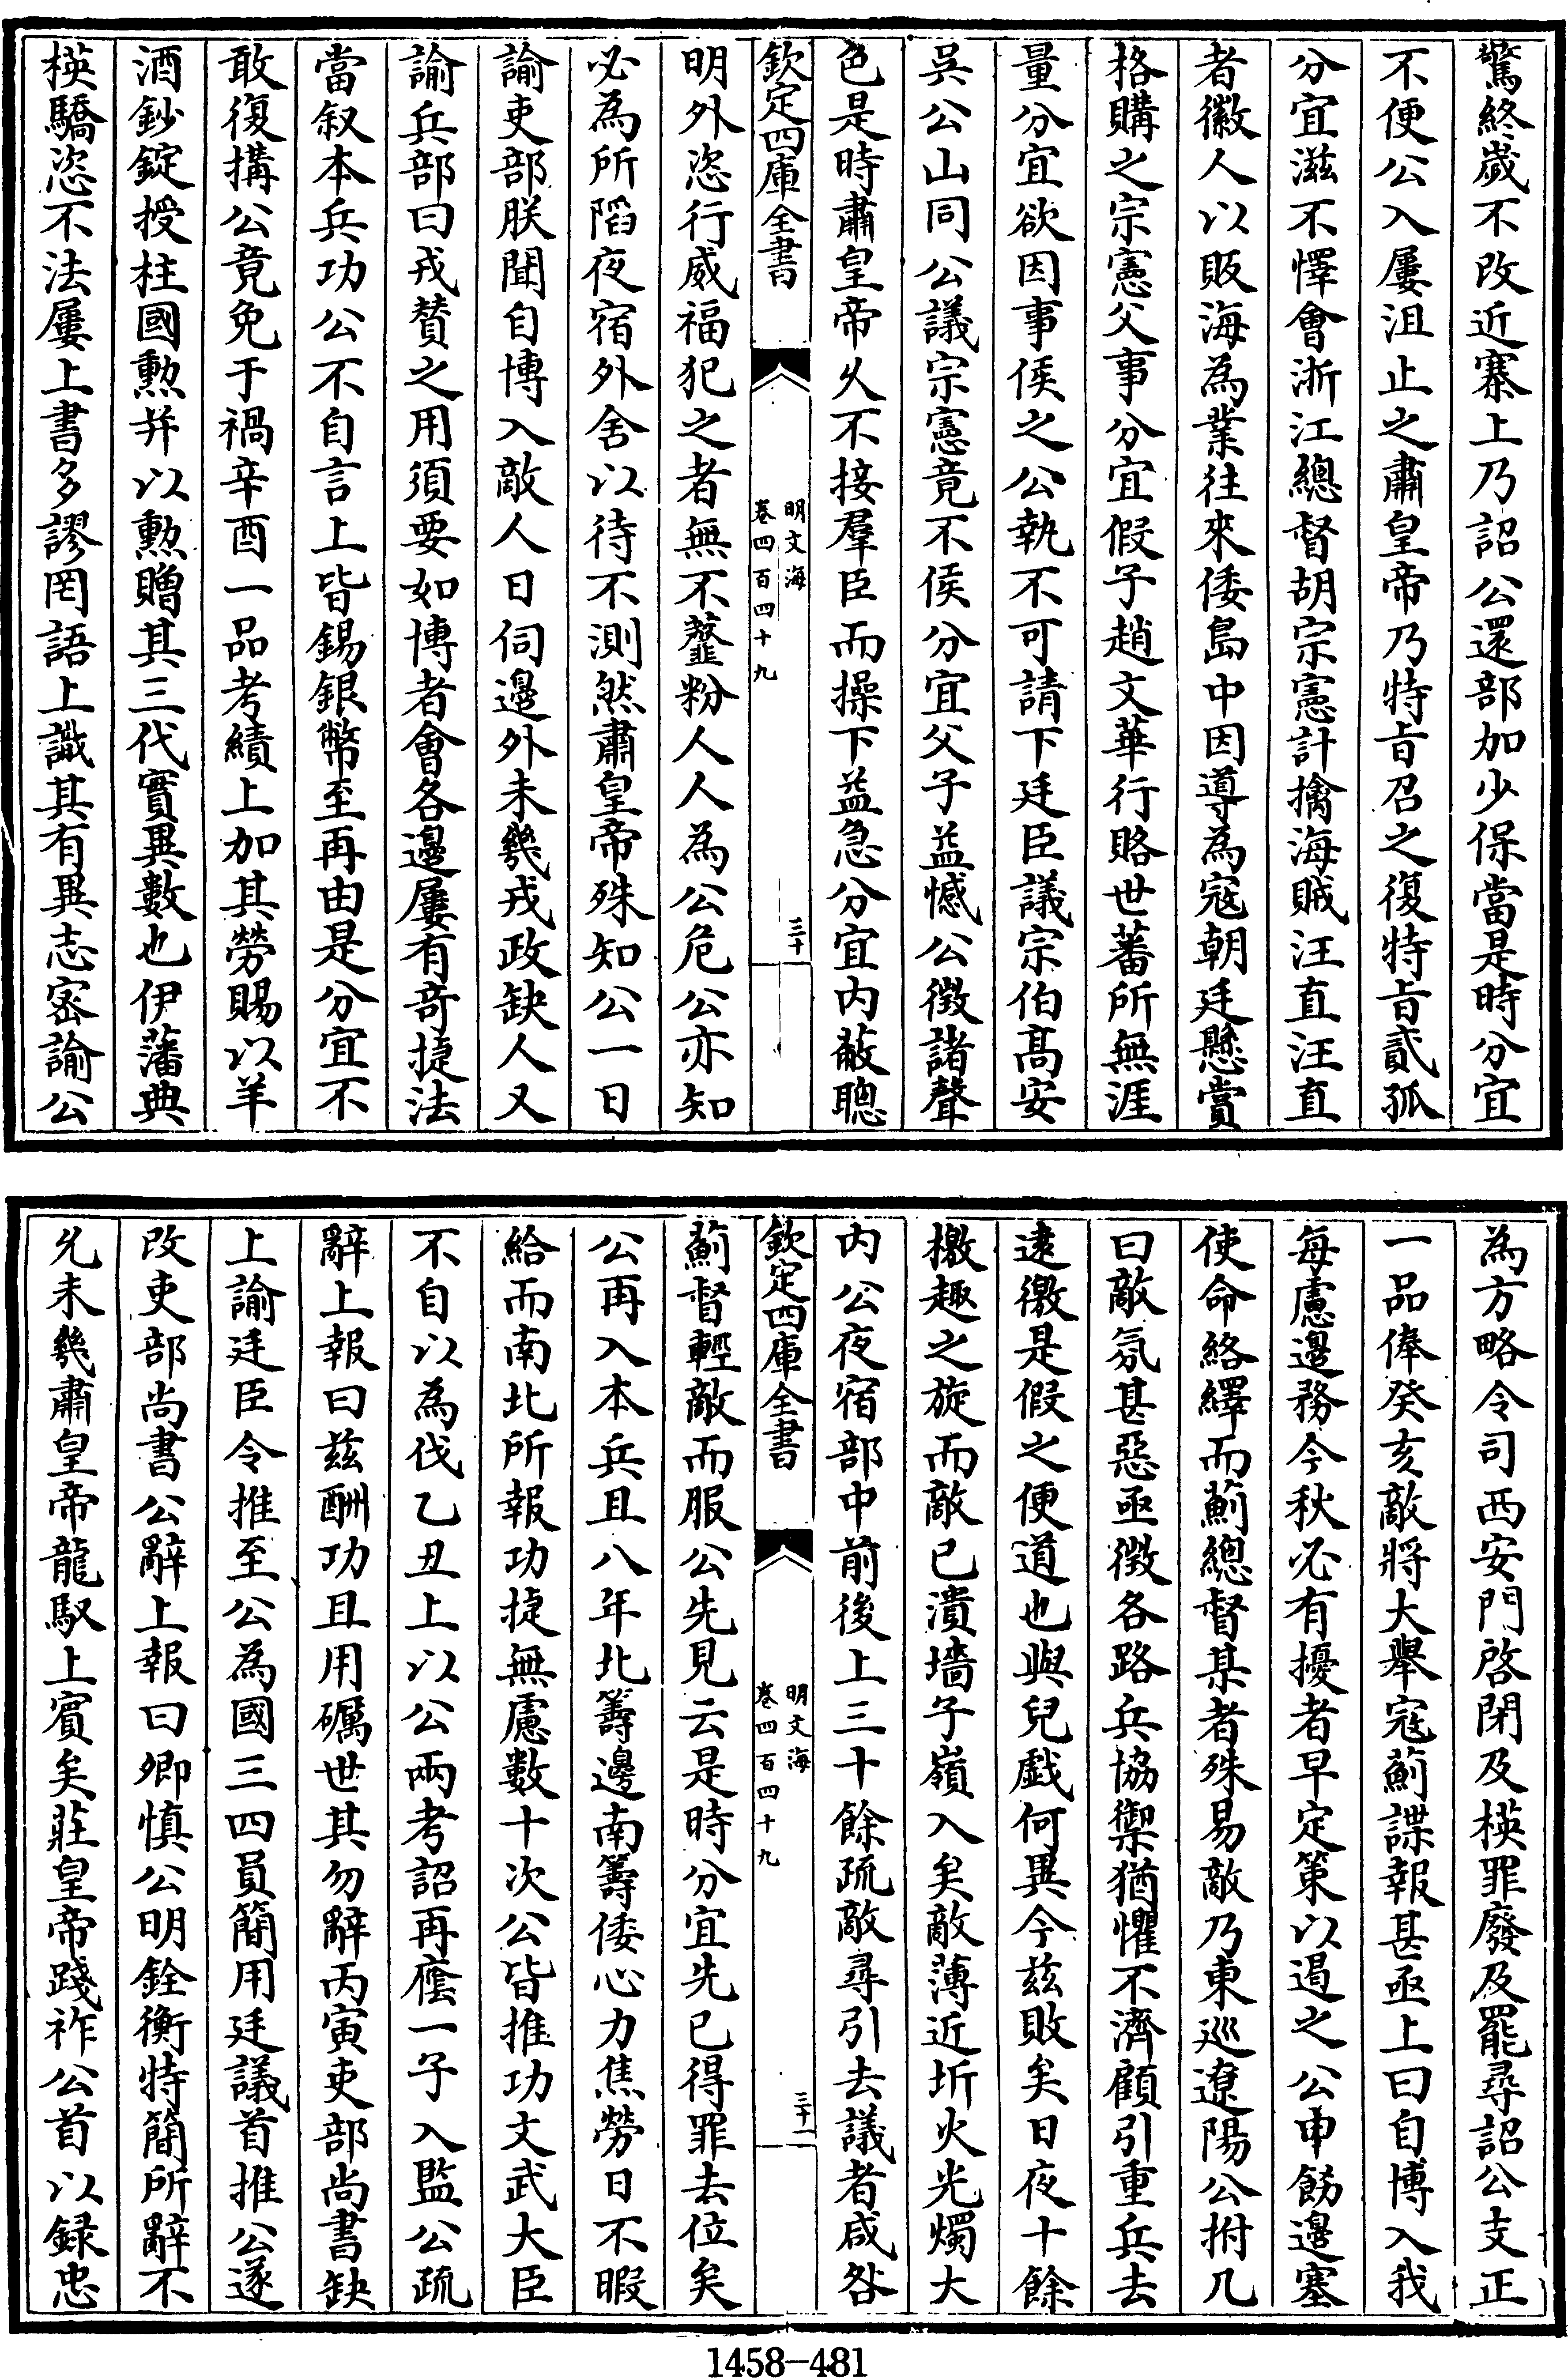 驚終歲不改近寨上乃詔公還部加少保當是時分宜
不便公入屢沮止之肅皇帝乃特㫖召之復特㫖貳孤
分宜滋不懌會浙江總督胡宗憲計擒海賊汪直汪直
者徽人以販海為業往來倭島中因導為寇朝廷懸賞
格購之宗憲父事分宜假子趙文華行賂世蕃所無涯
量分宜欲因事侯之公執不可請下廷臣議宗伯髙安
吳公山同公議宗憲竟不侯分宜父子益憾公徴諸聲
色是時肅皇帝乆不接羣臣而操下益急分宜内蔽聰
欽定四庫全書
明文海
卷四百四十九
三十
明外恣行威福犯之者無不虀粉人人為公危公亦知
必為所陷夜宿外舍以待不測然肅皇帝殊知公一日
諭吏部朕聞自博入敵人日伺邉外未幾戎政缺人又
諭兵部曰戎賛之用須要如博者會各邉屢有竒捷法
當叙本兵功公不自言上皆錫銀幣至再由是分宜不
敢復搆公竟免于禍辛酉一品考績上加其勞賜以羊
酒鈔錠授柱國勲并以勲贈其三代實異數也伊藩典
楧驕恣不法屢上書多謬罔語上識其有異志密諭公
為方略令司西安門啓閉及楧罪廢及罷尋詔公支正
一品俸癸亥敵將大舉寇薊諜報甚亟上曰自博入我
每慮邉務今秋必有擾者早定策以遏之公申飭邉塞
使命絡繹而薊總督某者殊易敵乃東廵遼陽公拊几
曰敵氛甚惡亟徴各路兵協禦猶懼不濟顧引重兵去
逺徼是假之便道也與兒戲何異今兹敗矣日夜十餘
檄趣之旋而敵已潰墻子嶺入矣敵薄近圻火光燭大
内公夜宿部中前後上三十餘疏敵尋引去議者咸咎
欽定四庫全書
明文海
卷四百四十九
三十一
薊督輕敵而服公先見云是時分宜先已得罪去位矣
公再入本兵且八年北籌邊南籌倭心力焦勞日不暇
給而南北所報功捷無慮數十次公皆推功文武大臣
不自以為伐乙丑上以公兩考詔再廕一子入監公疏
辭上報曰兹酬功且用礪世其勿辭丙寅吏部尚書缺
上諭廷臣令推至公為國三四員簡用廷議首推公遂
改吏部尚書公辭上報曰卿慎公明銓衡特簡所辭不
允未幾肅皇帝龍馭上賓矣莊皇帝踐祚公首以録忠
1458-481